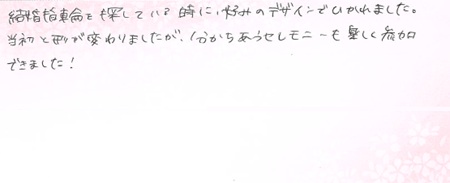 結婚指輪を探している時に、好みのデザインでひかれました。
当初と形が変わりましたが、分かちあうセレモニーも楽しく参加
できました!